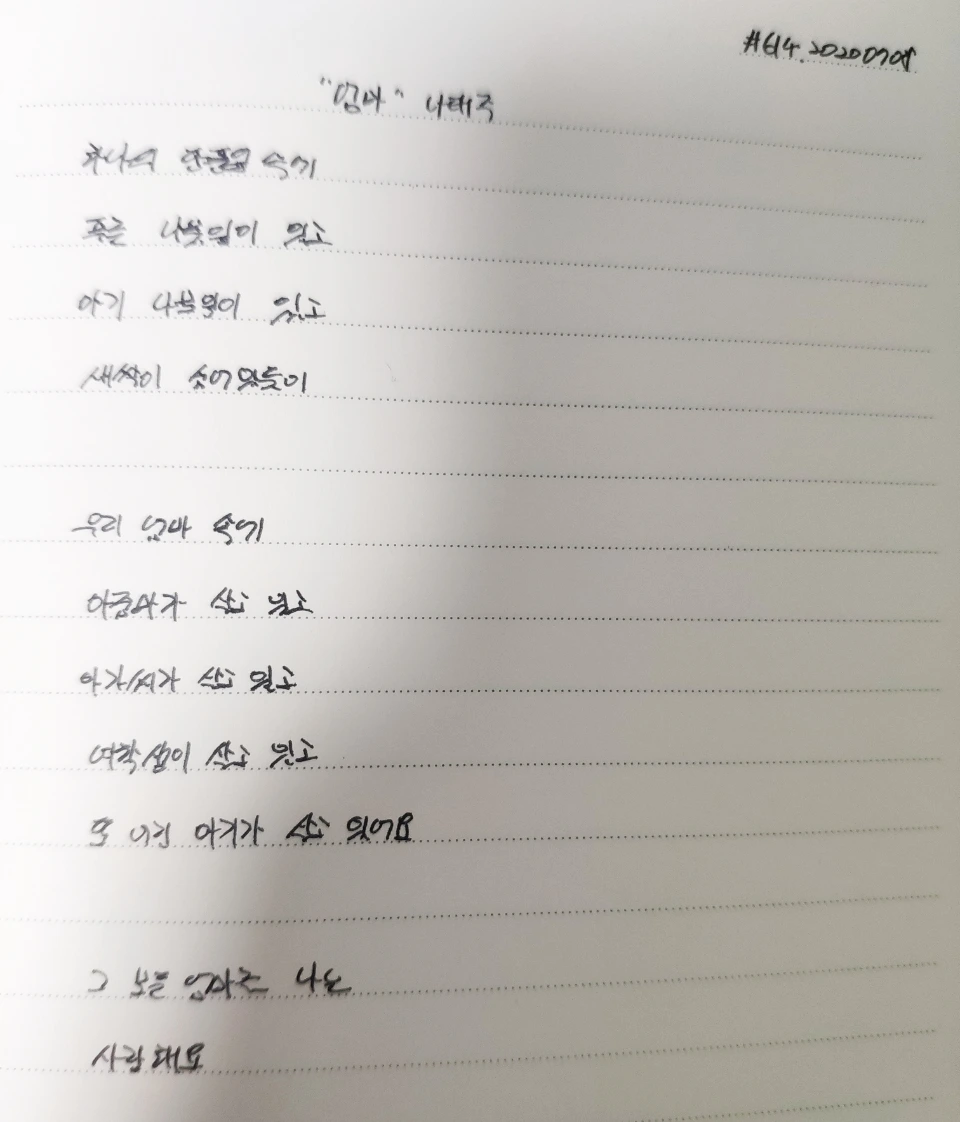 #614. 20200708
"엄마" 나태주
하나의 속에
죽은 나뭇잎이 있고
아기 나뭇잎이 있고
새싹이 숨어 있듯이
우리 엄마 속에
아줌마가 살고 있고
아가씨가 살고 있고
여학생이 살고 있고
또 어린 아기가 살고 있어요
그 모든 엄마를 나는
사랑해요